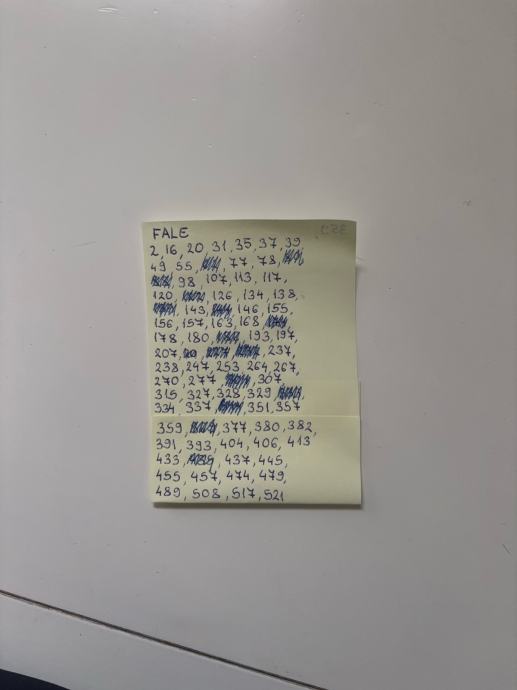 FALE
2, 16, 20, 31, 35, 37, 39
49, 55, 77, 78,
98, 107, 113, 117,
120, 126, 134, 138,
143, 146, 155,
156, 157, 163, 168
178, 180, 193, 197,
207, 237,
238, 247, 253, 264, 267,
270, 277, 307
315, 327, 328, 329
334, 337, 351, 357
359, 377, 380, 382,
391, 393, 404, 406, 413
433, 437, 445,
455, 457, 474, 479,
489, 508, 517, 521